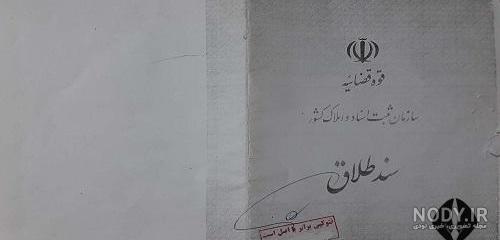 قوه قضائیه
سازمان ثبت اسناد و املاک کشور
سند طلاق
فتوکپی برابر با اصل است
NODY.IR
مجله تصویری، خبری نودی